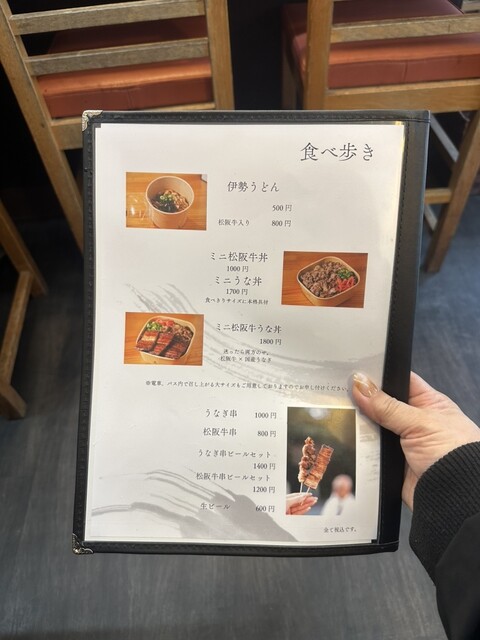 食べ歩き
伊勢うどん
500円
松阪牛入り 800円
ミニ松阪牛丼
1000円
ミニうな丼
1700円
食べきりサイズに本格具材
ミニ松阪牛うな丼
1800円
迷ったら両方のせ。
松阪牛×国産うなぎ
※電車、バス内で召し上がる大サイズもご用意しておりますのでお申し付けください。
うなぎ串 1000円
松阪牛串 800円
うなぎ串ビールセット
1400円
松阪牛串ビールセット
1200円
生ビール 600円
全て税込です。